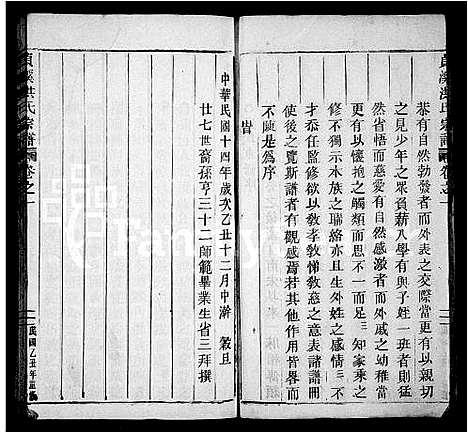 恭有自然勃發者而外表之交際當更有以親切
之見少年之眾員薪入學有與子姪一班者則猛
然省悟而慈愛有自然感激者而外戚之幼稚當
更有以懷抱之觸類而思不一而足三知家乘之
修不獨示本族之聯絡亦且生外姓之感情三不
才忝任監修欲以敎孝敎悌敎慈之意表諸譜冊
使後之覽斯譜者有觀感焉若其他作用皆畧而
不陳是爲序
旹
中華民國十四年歲次乙丑十二月中澣 穀旦
廿七世裔孫亨三十二師範畢業生省三拜撰
溪洪氏宗譜 卷之一
民國乙丑年